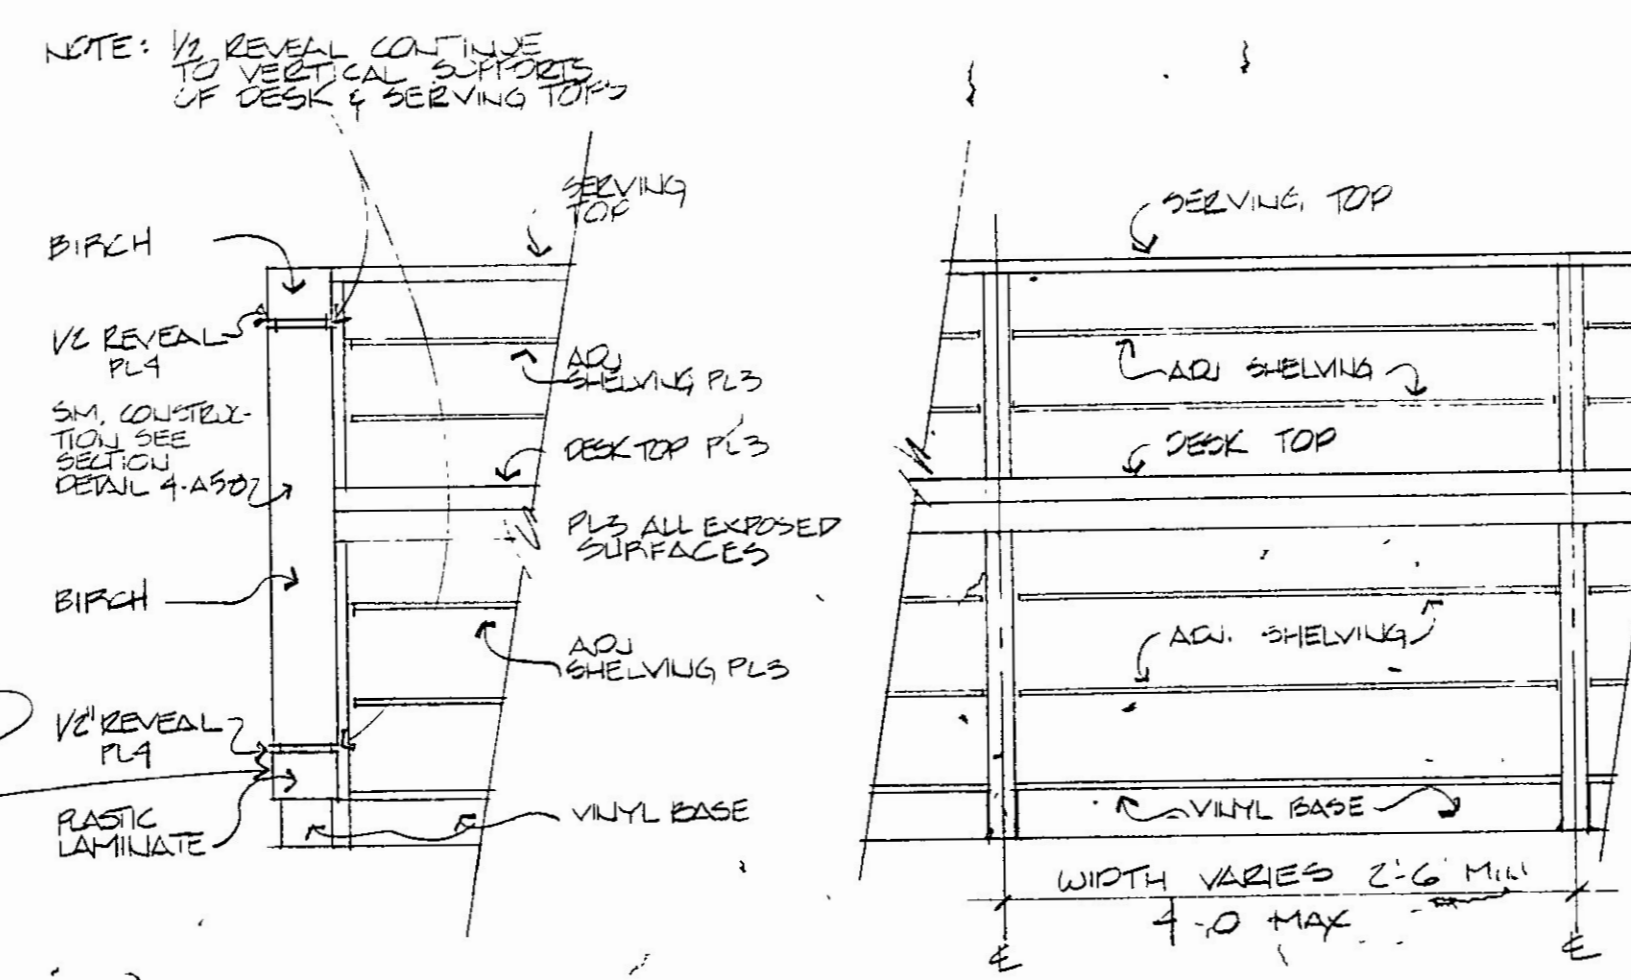 NOTE: 1/2 REVEAL CONTINUE
TO VERTICAL SUPPORTS
OF DESK & SERVING TOPS
SERVING
TOP
BIRCH
1/2 REVEAL
PL4
SIM. CONSTRUC-
TION SEE
SECTION
DETAIL 4-A507
ADJ
SHELVING PL3
DESK TOP PL3
PL3 ALL EXPOSED
SURFACES
BIRCH
ADJ
SHELVING PL3
1/2" REVEAL
PL4
PLASTIC
LAMINATE
VINYL BASE
SERVING TOP
ADJ SHELVING
DESK TOP
ADJ. SHELVING
VINYL BASE
WIDTH VARIES 2'-6 MIN
4-0 MAX
℄
℄